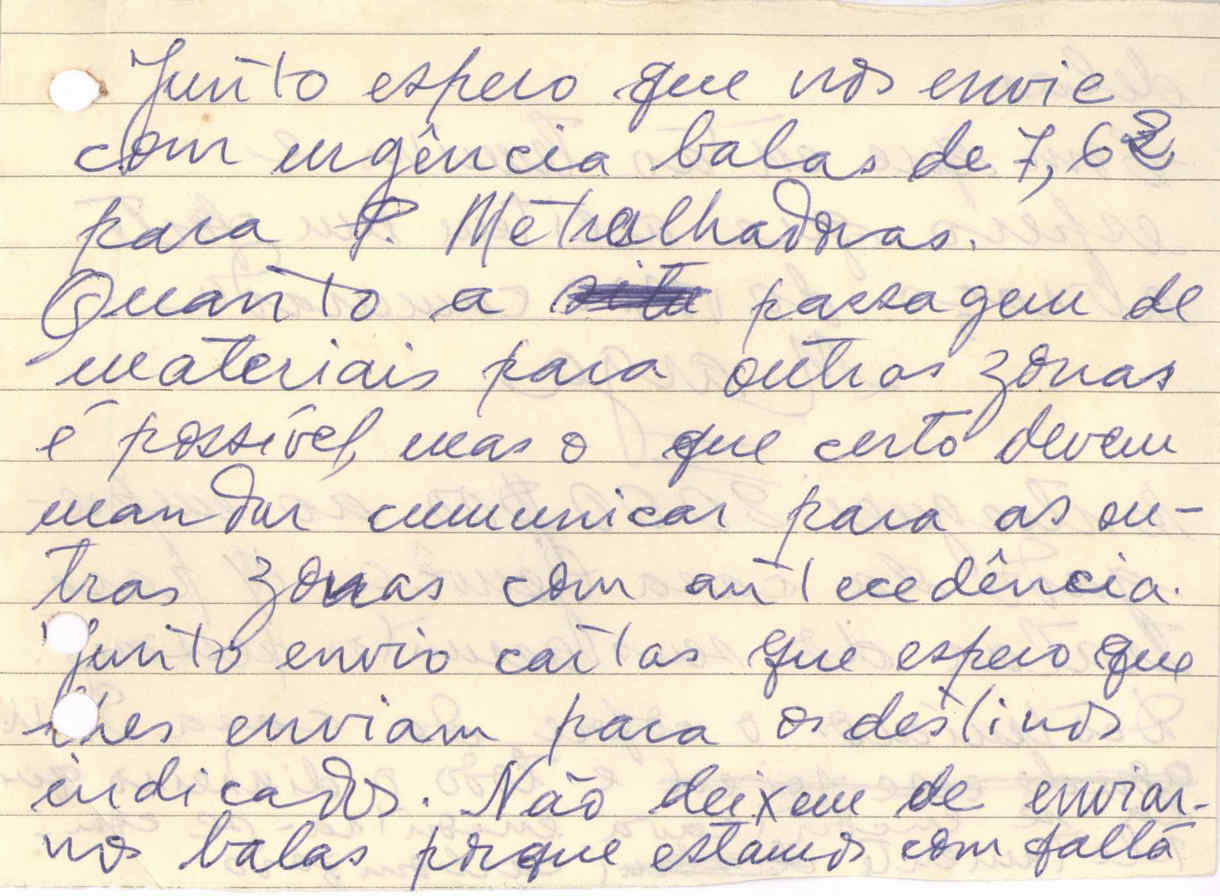 Junto espero que nos envie
com urgência balas de 7,62
para P. Metralhadoras.
Quanto a passagem de
materiais para outras zonas
é possível, mas o que certo devem
mandar comunicar para as ou-
tras zonas com antecedência.
Junto envio cartas que espero que
lhes enviam para os destinos
indicados. Não deixem de enviar-
nos balas porque estamos com falta